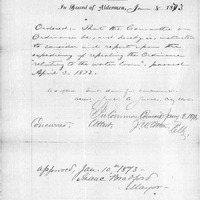 In Board of Aldermen, Jan 8 1873
Ordered; That the Committee on
Ordinances be, and hereby is instructed
to consider and report upon the
expediency of repealing the Ordinance
"relating to the water loan", passed
April 3, 1872.
In Common Council Jany 9, 1873
Concurred. Attest,
Clk.
Approved, Jan. 10, 1873.
Isaac Bradford
Mayor.